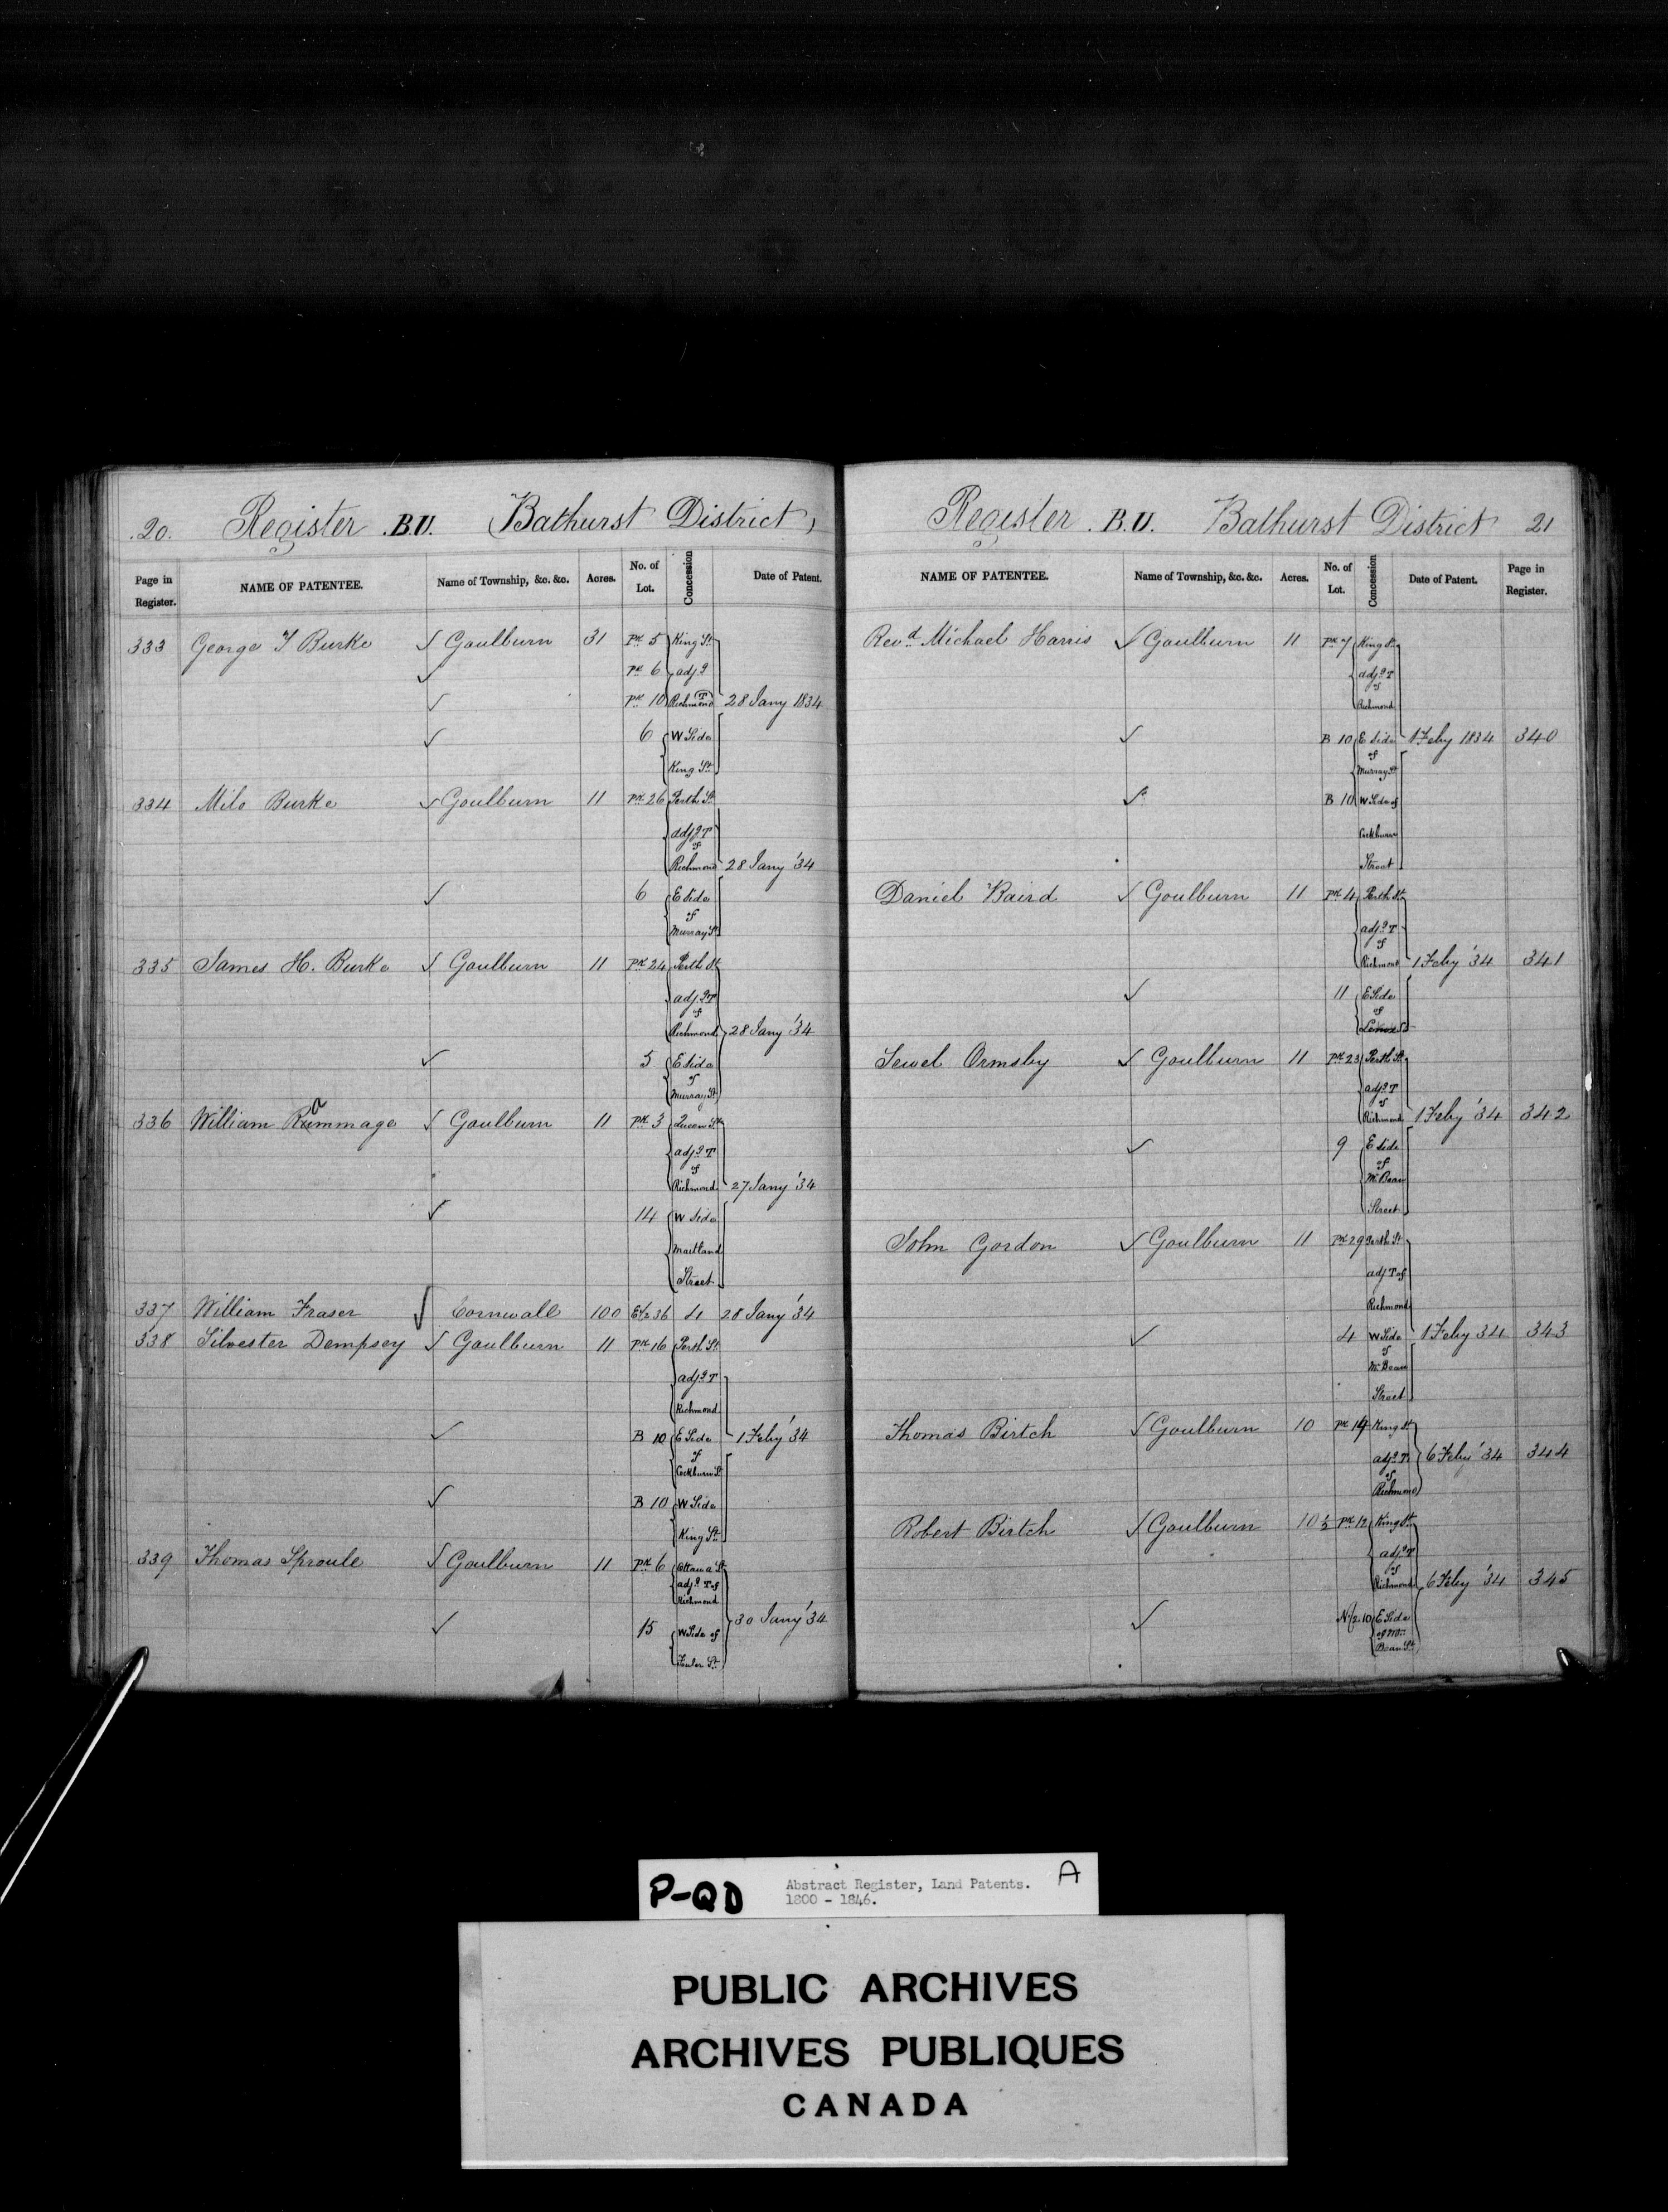 20. Register B.U. Bathurst District
Page in Register. NAME OF PATENTEE. Name of Township, &c. &c. Acres. No. of Lot. Concession Date of Patent.
333 George T Burke ✓ Goulburn 31 Pk 5 King St
✓ Pk 6 adjg
✓ Pk 10 Richmond T 28 Jany 1834
✓ 6 W Side
King St
334 Milo Burke ✓ Goulburn 11 Pk 26 Perth St
adjg T
of
Richmond 28 Jany '34
✓ 6 E Side
of
Murray St
335 James H. Burke ✓ Goulburn 11 Pk 24 Perth St
adjg T
of
Richmond 28 Jany '34
✓ 5 E Side
of
Murray St
336 William Rammage ✓ Goulburn 11 Pk 3 Queen St
adjg T
of
Richmond 27 Jany '34
✓ 14 W Side
Maitland
Street
337 William Fraser ✓ Cornwall 100 E½ 36 4 28 Jany '34
338 Silvester Dempsey ✓ Goulburn 11 Pk 16 Perth St
adjg T
Richmond
✓ B 10 E Side 1 Feby '34
of
Cockburn St
✓ B 10 W Side
King St
339 Thomas Sproule ✓ Goulburn 11 Pk 6 Ottawa St
adjg T of
Richmond
✓ 15 W Side of 30 Jany '34
Fowler St
Register B.U. Bathurst District 21
NAME OF PATENTEE. Name of Township, &c. &c. Acres. No. of Lot. Concession Date of Patent. Page in Register.
Revd. Michael Harris ✓ Goulburn 11 Pk 7 King St
adjg T
of
Richmond
✓ B 10 E Side 1 Feby 1834 340
of
Murray St
✓ B 10 W Side of
Cockburn
Street
Daniel Baird ✓ Goulburn 11 Pk 4 Perth St
adjg T
of
Richmond 1 Feby '34 341
✓ 11 E Side
of
Lenox St
Sewel Ormsby ✓ Goulburn 11 Pk 23 Perth St
adjg T
of
Richmond 1 Feby '34 342
✓ 9 E Side
of
McBean
Street
John Gordon ✓ Goulburn 11 Pk 29 Perth St
adj T of
Richmond
✓ 4 W Side 1 Feby 34 343
of
McBean
Street
Thomas Birtch ✓ Goulburn 10 Pk 14 King St
adjg T 6 Feby '34 344
of
Richmond
Robert Birtch ✓ Goulburn 10½ Pk 12 King St
adjg T
of
Richmond 6 Feby '34 345
✓ N½ 10 E Side
of Mc
Bean St
P-QD Abstract Register, Land Patents. A
1800 - 1846.
PUBLIC ARCHIVES
ARCHIVES PUBLIQUES
CANADA